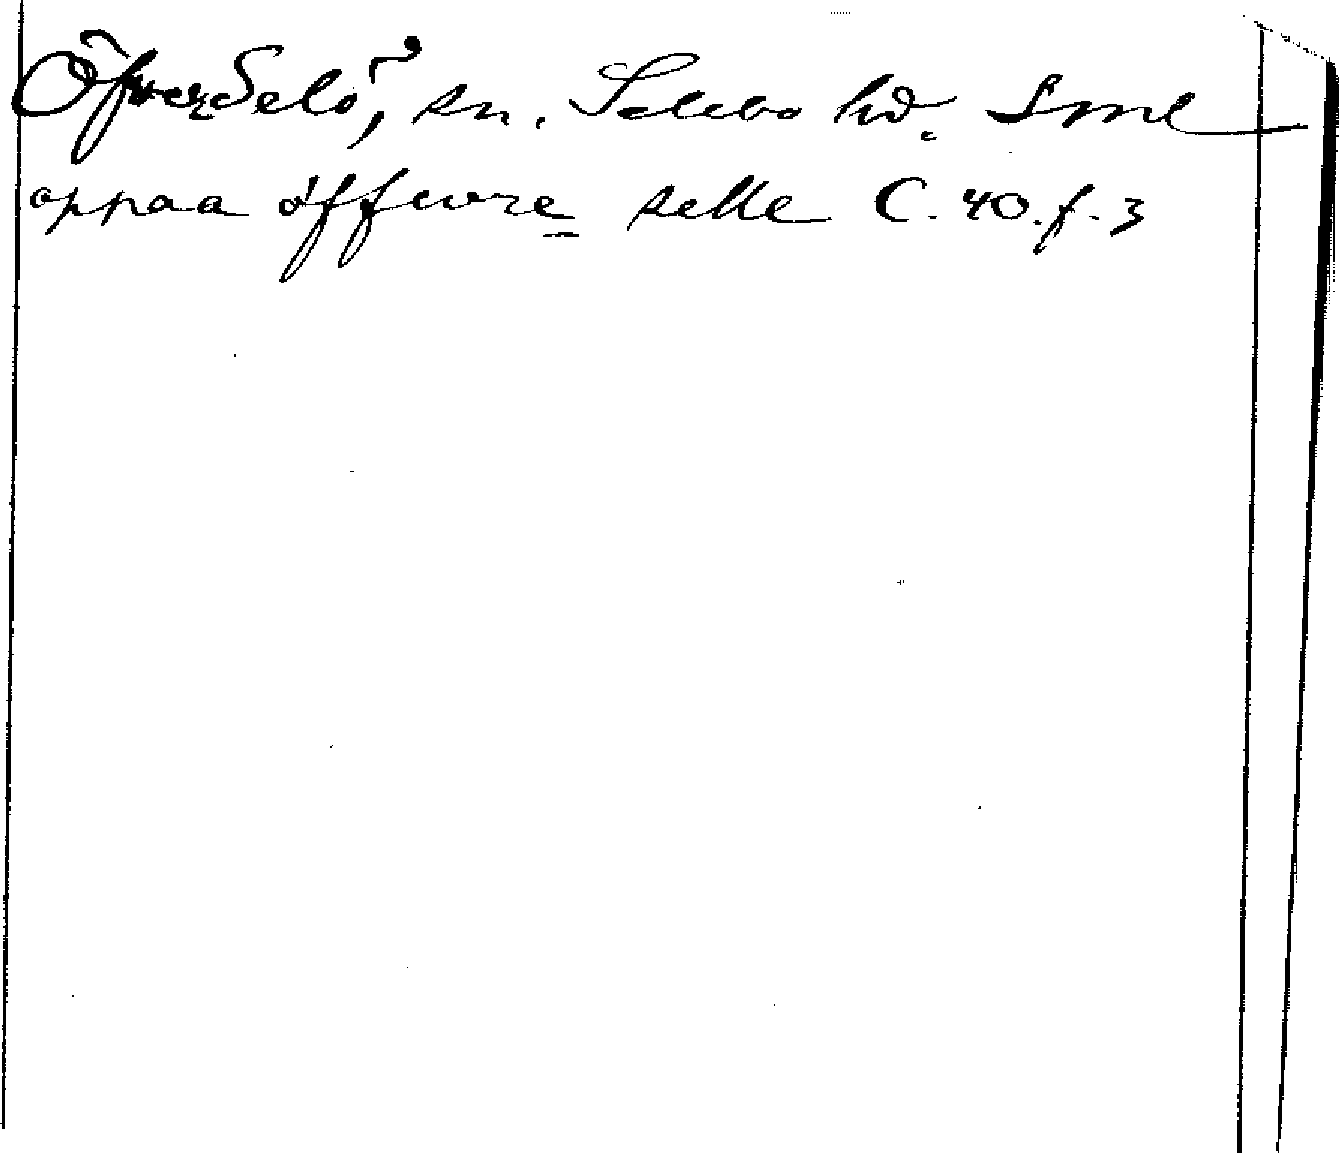 Öfverselö, sn. Selebo hd. Sml
appaa öffwre selle C. 40. f. 3